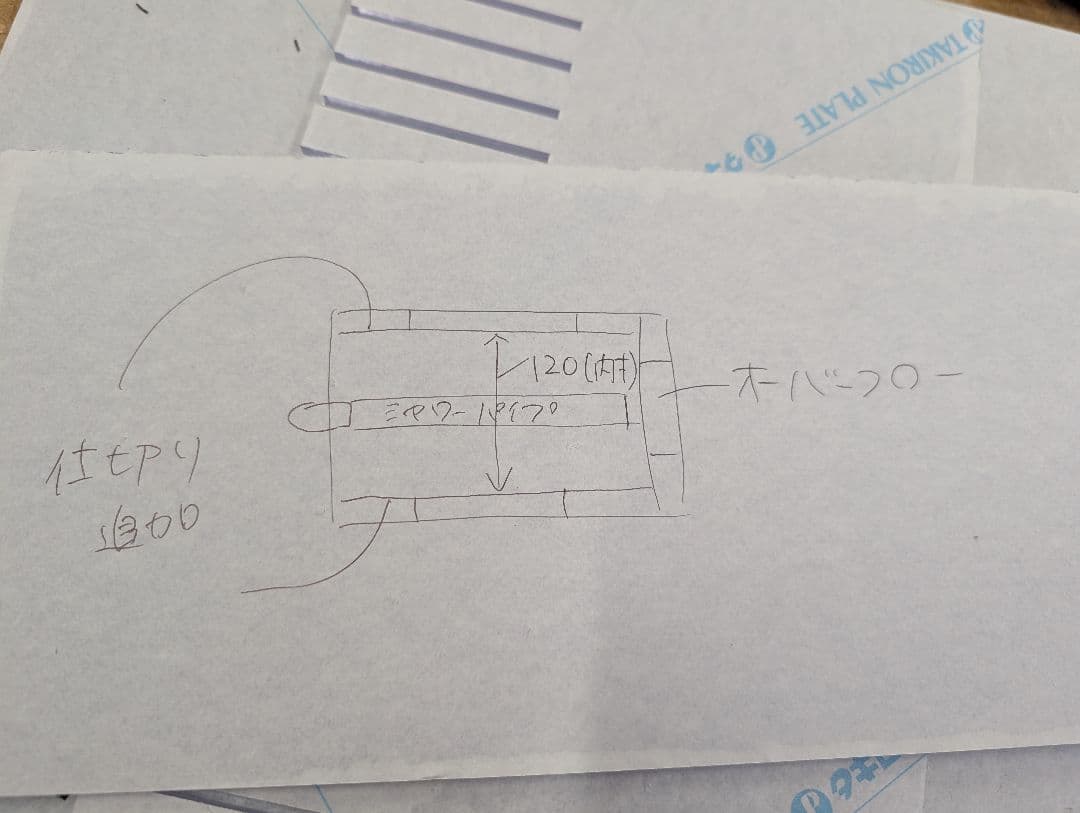 TAKIRON PLATE
120(内寸)
シャワーパイプ
オーバーフロー
仕切り
追加
タキ